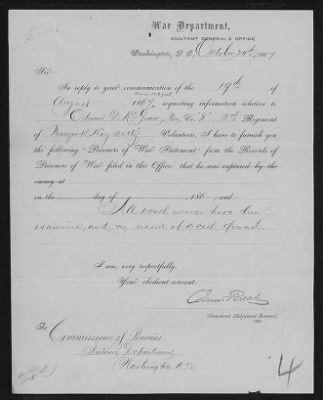 War Department,
ADJUTANT GENERAL'S OFFICE,
Washington, D. C., October 24th, 1867
Sir:
In reply to your communication of the 19th of
August 1867, requesting information relative to
Edward D. Mc, Co. "K", Regiment
of New York Volunteers, I have to furnish you
the following Prisoner of War Statement from the Records of
Prisoners of War filed in this Office: that he was captured by the
enemy at
on the day of 186 , and
All death records have been
examined and no record of death found.
I am, very respectfully,
Your obedient servant,
Assistant Adjutant General.
To
Commissioner of Pensions
Interior Department
Washington D.C.
4